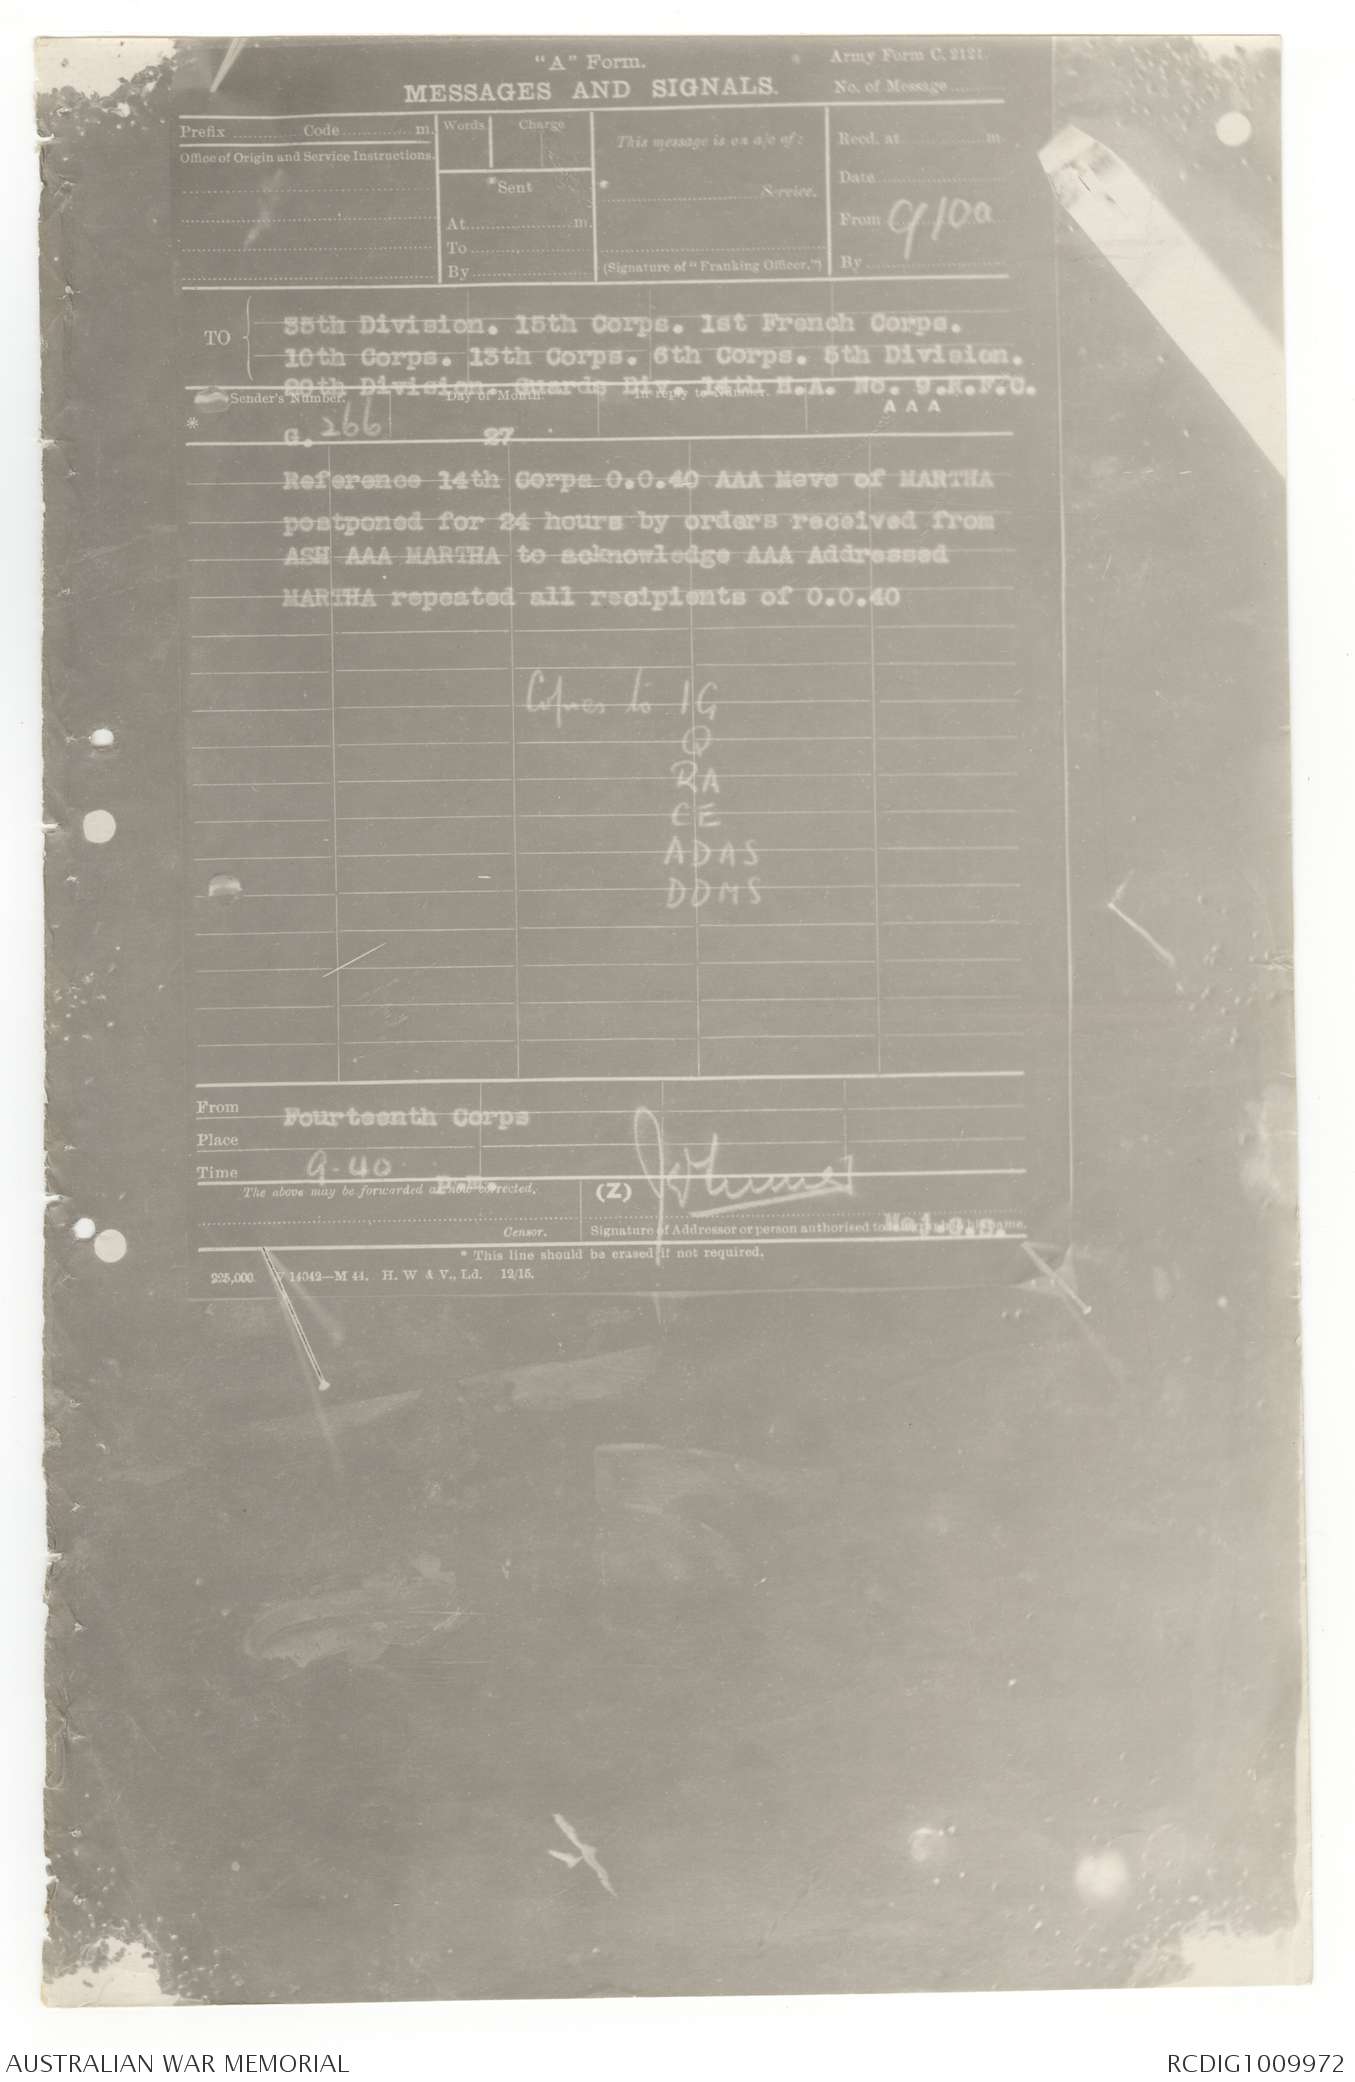 "A" Form.
Army Form C. 2121.
MESSAGES AND SIGNALS.
No. of Message
Prefix Code m.
Words Charge
This message is on a/c of:
Recd. at m.
Office of Origin and Service Instructions.
Date
Sent
Service.
At m.
From 910a
To
By
(Signature of "Franking Officer.")
By
TO
35th Division. 15th Corps. 1st French Corps.
10th Corps. 13th Corps. 6th Corps. 5th Division.
20th Division. Guards Div. 14th H.A. No. 9.R.F.C.
Sender's Number. Day of Month. In reply to Number.
A A A
* G. 266 27
Reference 14th Corps O.O.40 AAA Move of MARTHA
postponed for 24 hours by orders received from
ASH AAA MARTHA to acknowledge AAA Addressed
MARTHA repeated all recipients of O.O.40
Copies to IG
Q
RA
CE
ADAS
DDMS
From Fourteenth Corps
Place
Time 9-40 p.m.
The above may be forwarded as now corrected.
(Z)
Censor.
Signature of Addressor or person authorised to name.
* This line should be erased if not required.
14042—M 44. H. W & V., Ld. 12/15.
AUSTRALIAN WAR MEMORIAL
RCDIG1009972